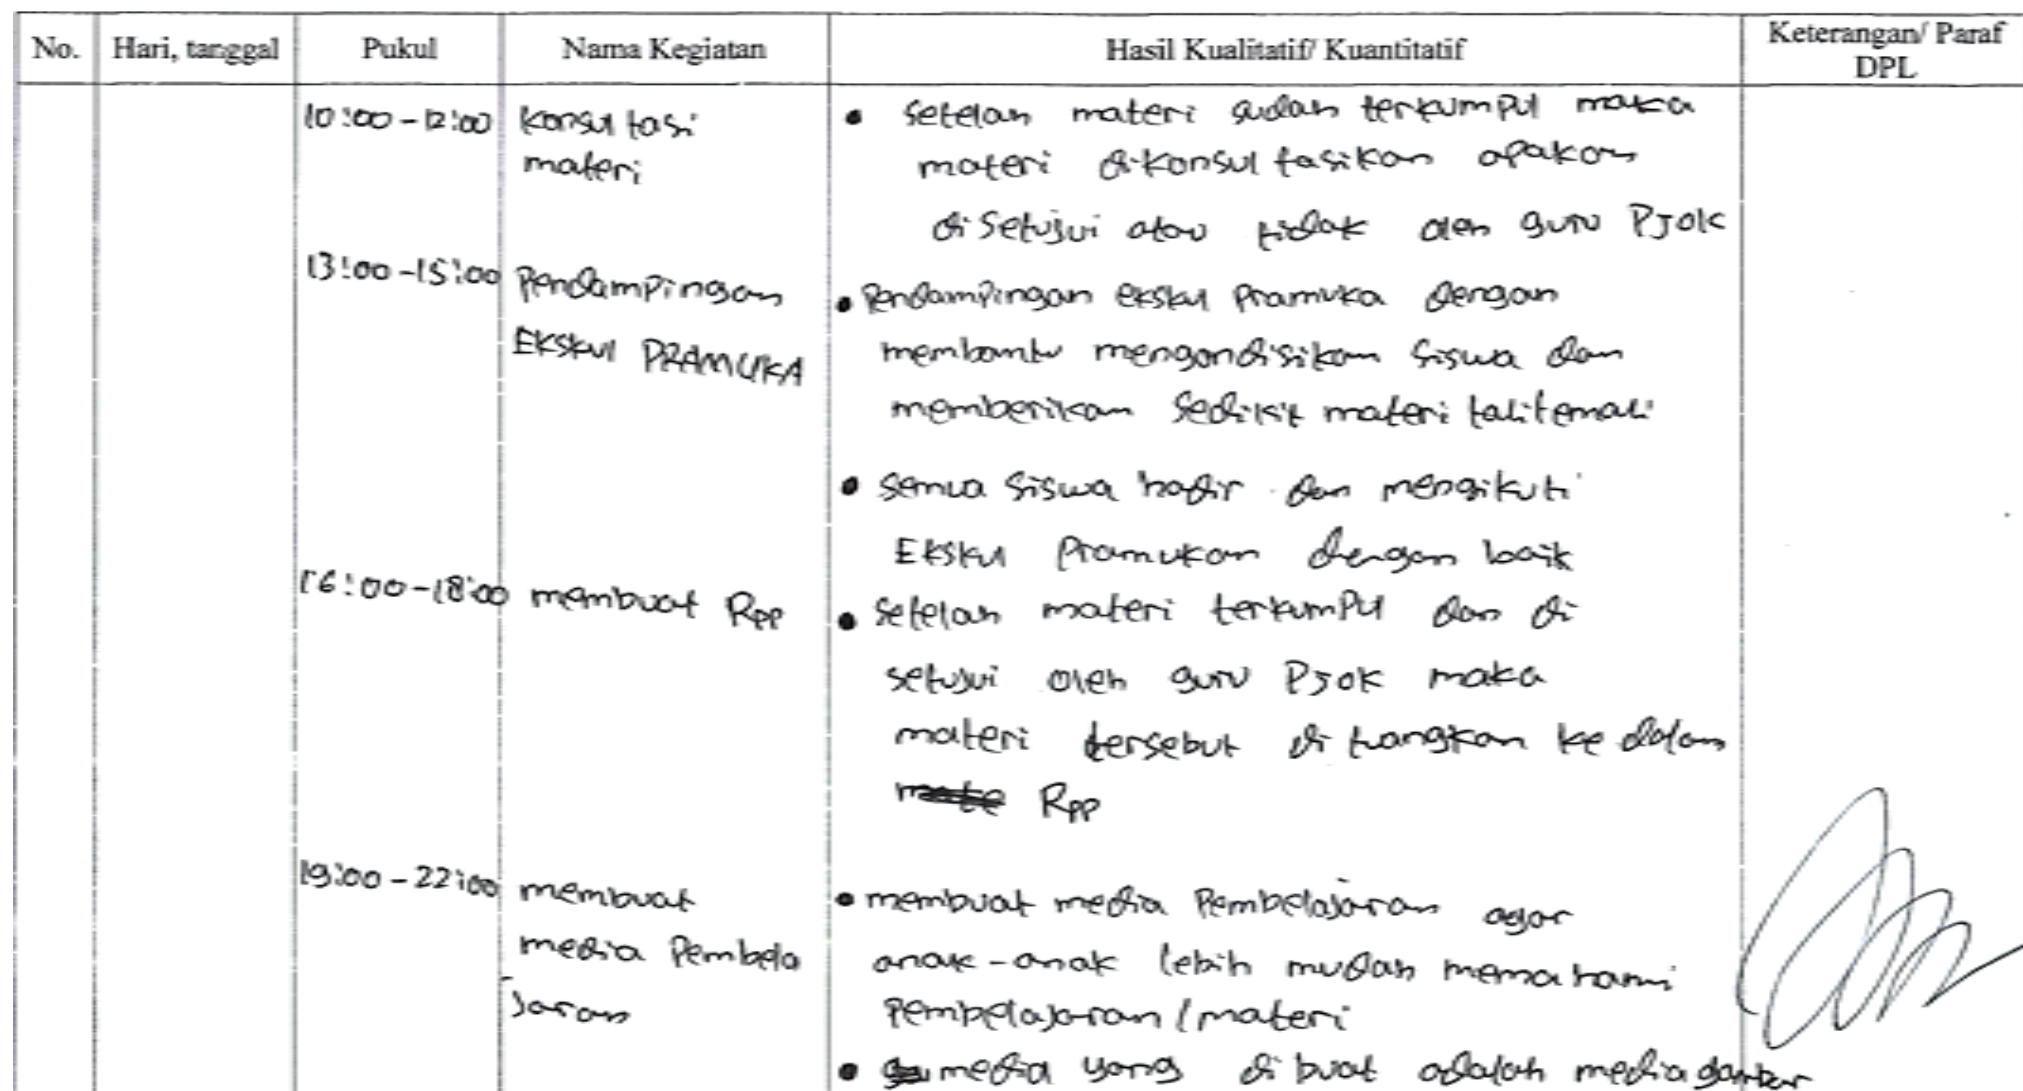 No. Hari, tanggal Pukul Nama Kegiatan Hasil Kualitatif/ Kuantitatif Keterangan/ Paraf DPL
10:00-12:00 Konsultasi materi
• Setelah materi sudah terkumpul maka
materi dikonsultasikan apakah
disetujui atau tidak oleh guru PJOK
13:00-15:00 Pendampingan
EKSKUL PRAMUKA
• Pendampingan ekskul pramuka dengan
membantu mengondisikan siswa dan
memberikan sedikit materi talitemali
• semua siswa hadir dan mengikuti
Ekskul Pramukan dengan baik
16:00-18:00 membuat RPP
• Setelah materi terkumpul dan di
setujui oleh guru PJOK maka
materi tersebut di tuangkan ke dalam
RPP
19:00-22:00 membuat
media Pembela
jaran
• membuat media Pembelajaran agar
anak-anak lebih mudah memahami
Pembelajaran/materi
• media yang di buat adalah media gambar